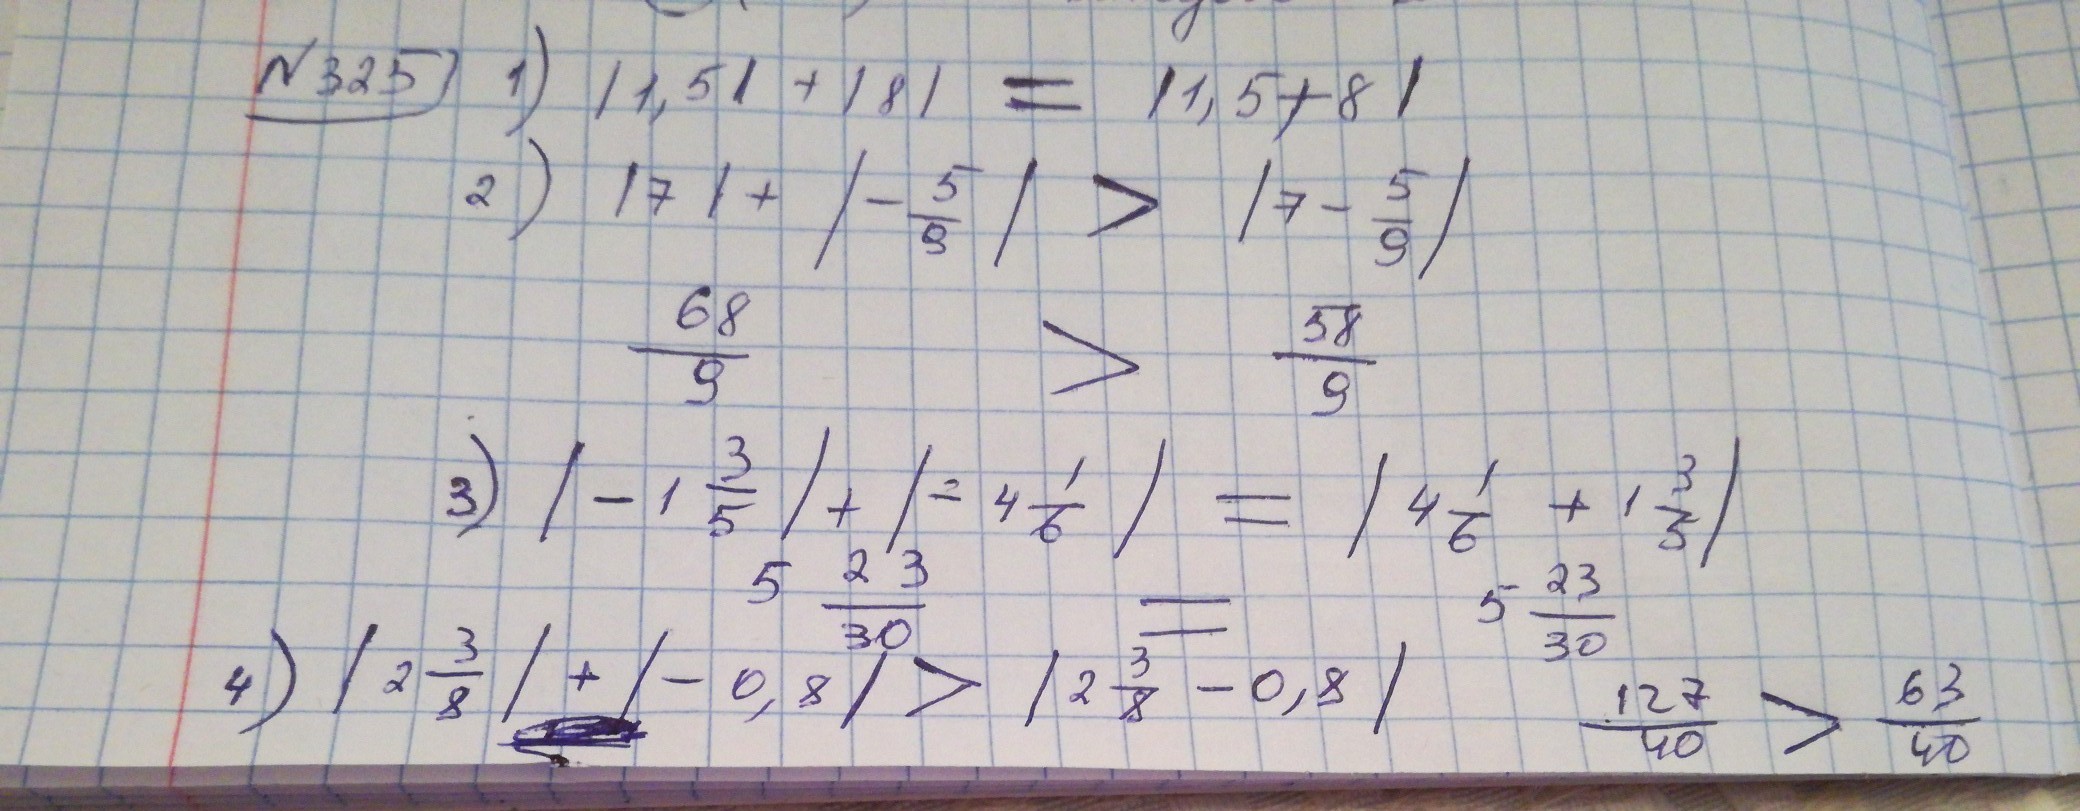 №325) 1) |1,5| + |8| = |1,5+8|
2) |7| + |-5/9| > |7-5/9|
68/9 > 58/9
3) |-1 3/5| + |-4 1/6| = |4 1/6 + 1 3/5|
5 23/30 = 5 23/30
4) |2 3/8| + |-0,8| > |2 3/8 - 0,8| 127/40 > 63/40